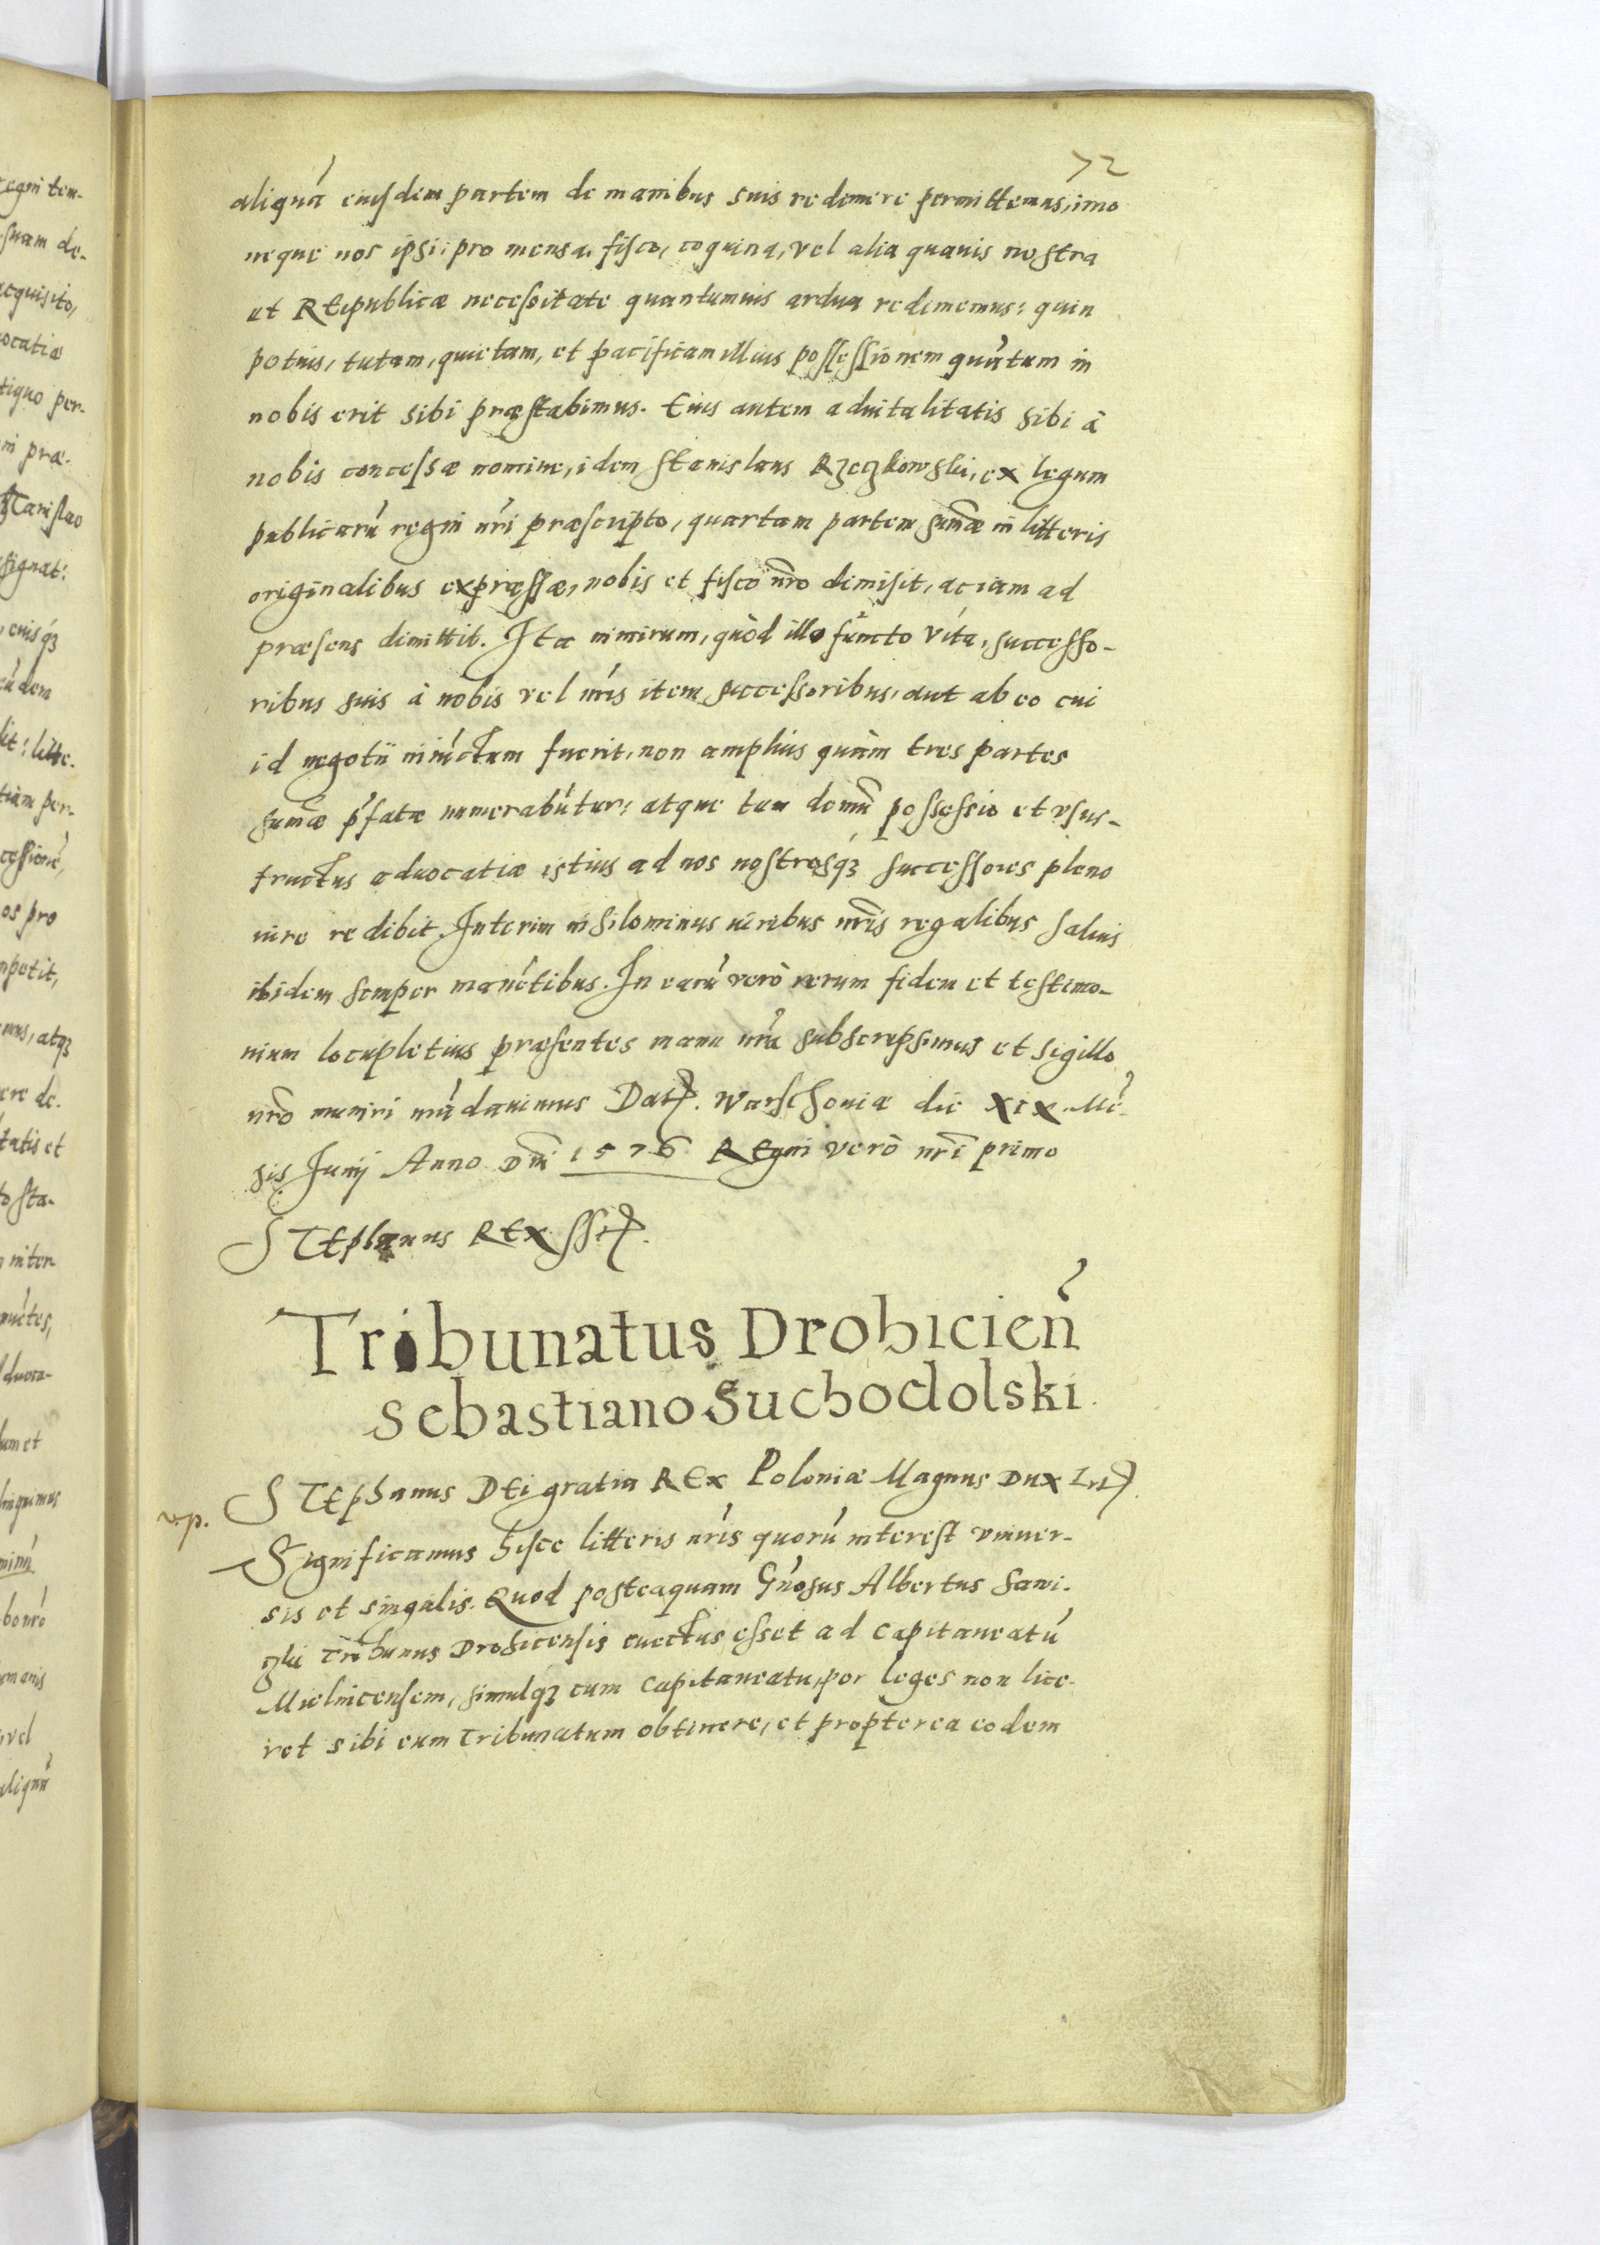 72
aliquá eiusdem partem de manibus suis redimere permittemus, imo
neque nos ipsi pro mensa, fisco, coquina, vel alia quauis nostra
et REipublicæ necessitate quantumuis ardua redimemus: quin
potius, tutam, quietam, et pacificam illius possessionem quãtum in
nobis erit sibi præstabimus. Eius autem aduitalitatis sibi à
nobis concessæ nomine, idem Stanislaus Rzeczkowski, ex legum
publicarũ regni nr̃i præscripto, quartam partem sum̃æ in litteris
originalibus expræssæ, nobis et fisco nr̃o dimisit, ac iam ad
præsens dimittit. Ita nimirum, quòd illo functo vita, successo-
ribus suis à nobis vel nr̃is item successoribus, aut ab eo cui
id negotii iniũctum fuerit, non amplius quàm tres partes
sum̃æ p̃fatæ numerabũtur: atque tum demũ possessio et vsus-
fructus aduocatiæ istius ad nos nostrosqȝ successores pleno
iure redibit. Interim nihilominus iuribus nr̃is regalibus saluis
ibidem semper manẽtibus. In earũ verò rerum fidem et testimo-
nium locupletius præsentes manu nr̃a subscripsimus et sigillo
nr̃o muniri mãdauimus Datꝭ. Warschouiæ die XIX Mẽ-
sis Junij Anno Dñi 1576 REgni verò nr̃i primo
STEphanus REx sstꝭ.
Tribunatus Drohicieñ
Sebastiano Suchodolski.
STEphanus DEi gratia REx Poloniæ Magnus Dux Litꝭ.
v.p.
Significamus hisce litteris nr̃is quorũ interest vniuer-
sis et singulis. Quod posteaquam Gñosus Albertus Sawi-
czki Tribunus Drohicensis euectus esset ad Capitaneatũ
Mielnicensem, simulqȝ cum Capitaneatu, per leges non lice-
ret sibi eum Tribunatum obtinere, et propterea eodem